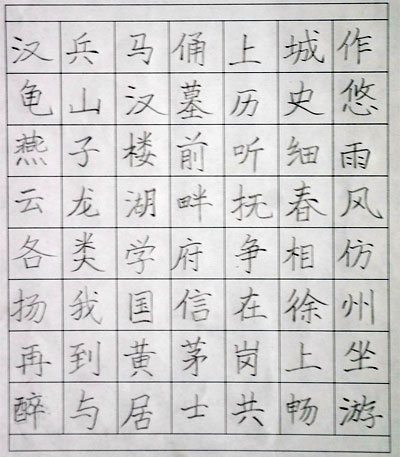 汉兵马俑上城作
龟山汉墓历史悠
燕子楼前听细雨
云龙湖畔抚春风
各类学府争相仿
扬我国信在徐州
再到黄茅岗上坐
醉与居士共畅游